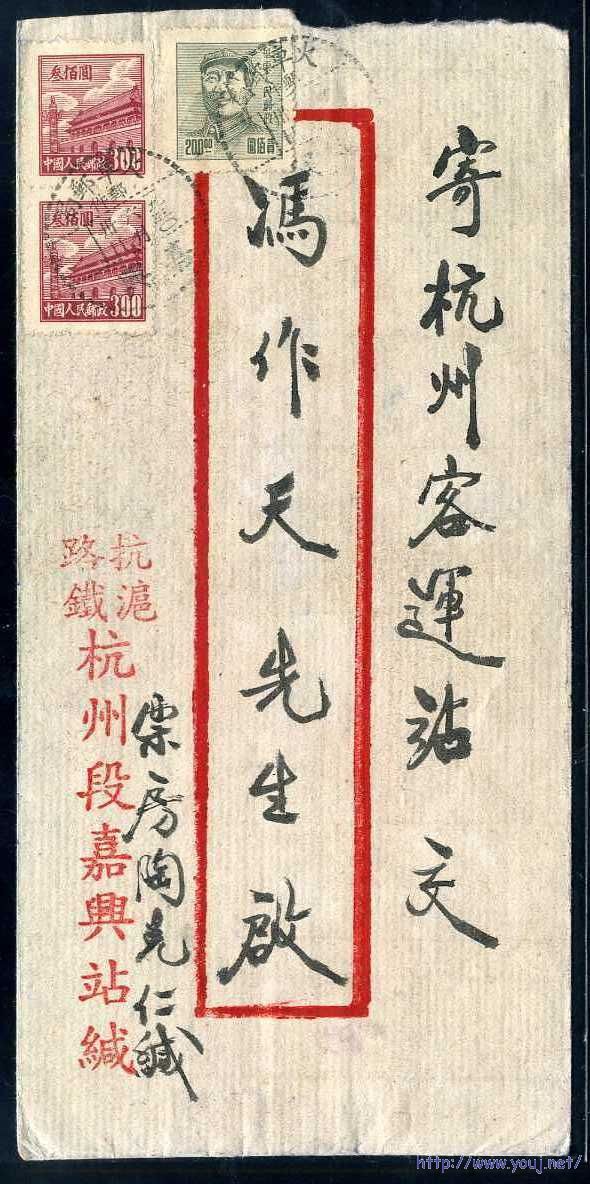 寄杭州客運站交
馮作天先生啟
叁佰圓
中國人民郵政300
叁佰圓
中國人民郵政300
200.00
圓佰貳
滬杭
鐵路
杭州段嘉興站緘
票房陶克仁緘
http://www.youj.net/